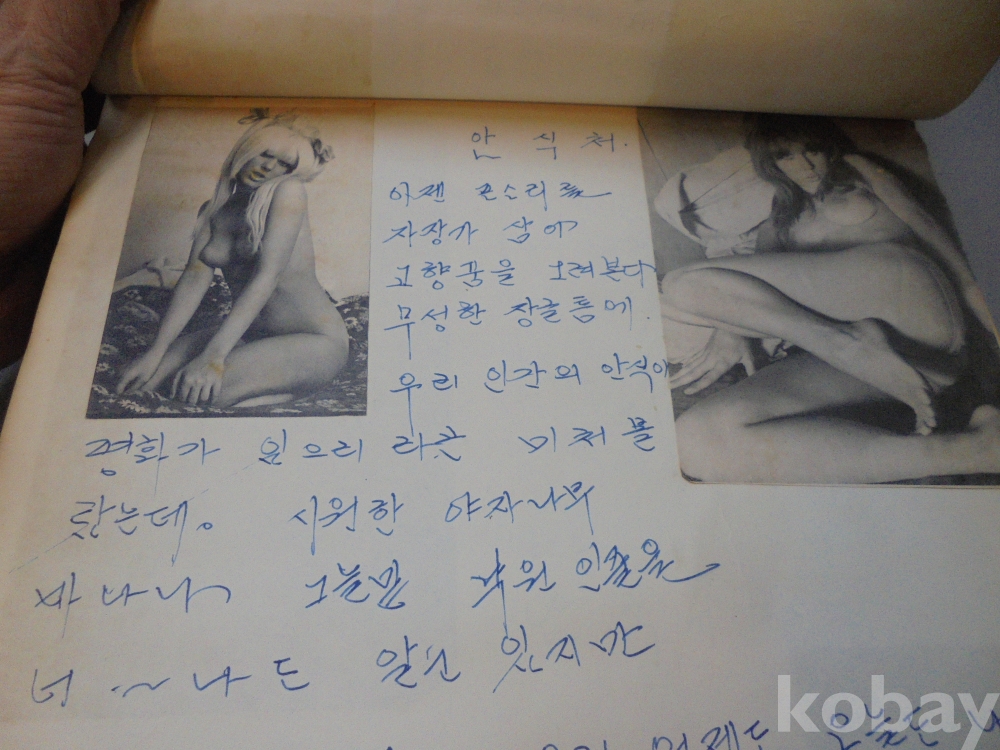 안 식 처.
이젠 포소리를
자장가 삼아
고향꿈을 그려본다
무성한 장글틈에.
우리 인간의 안식이
평화가 있으리 라곤 미처 몰
랐는데。 시원한 야자나무
바나나 그늘밑 낙원 인줄을
너~나도 알곤 있지만
오늘도
kobay